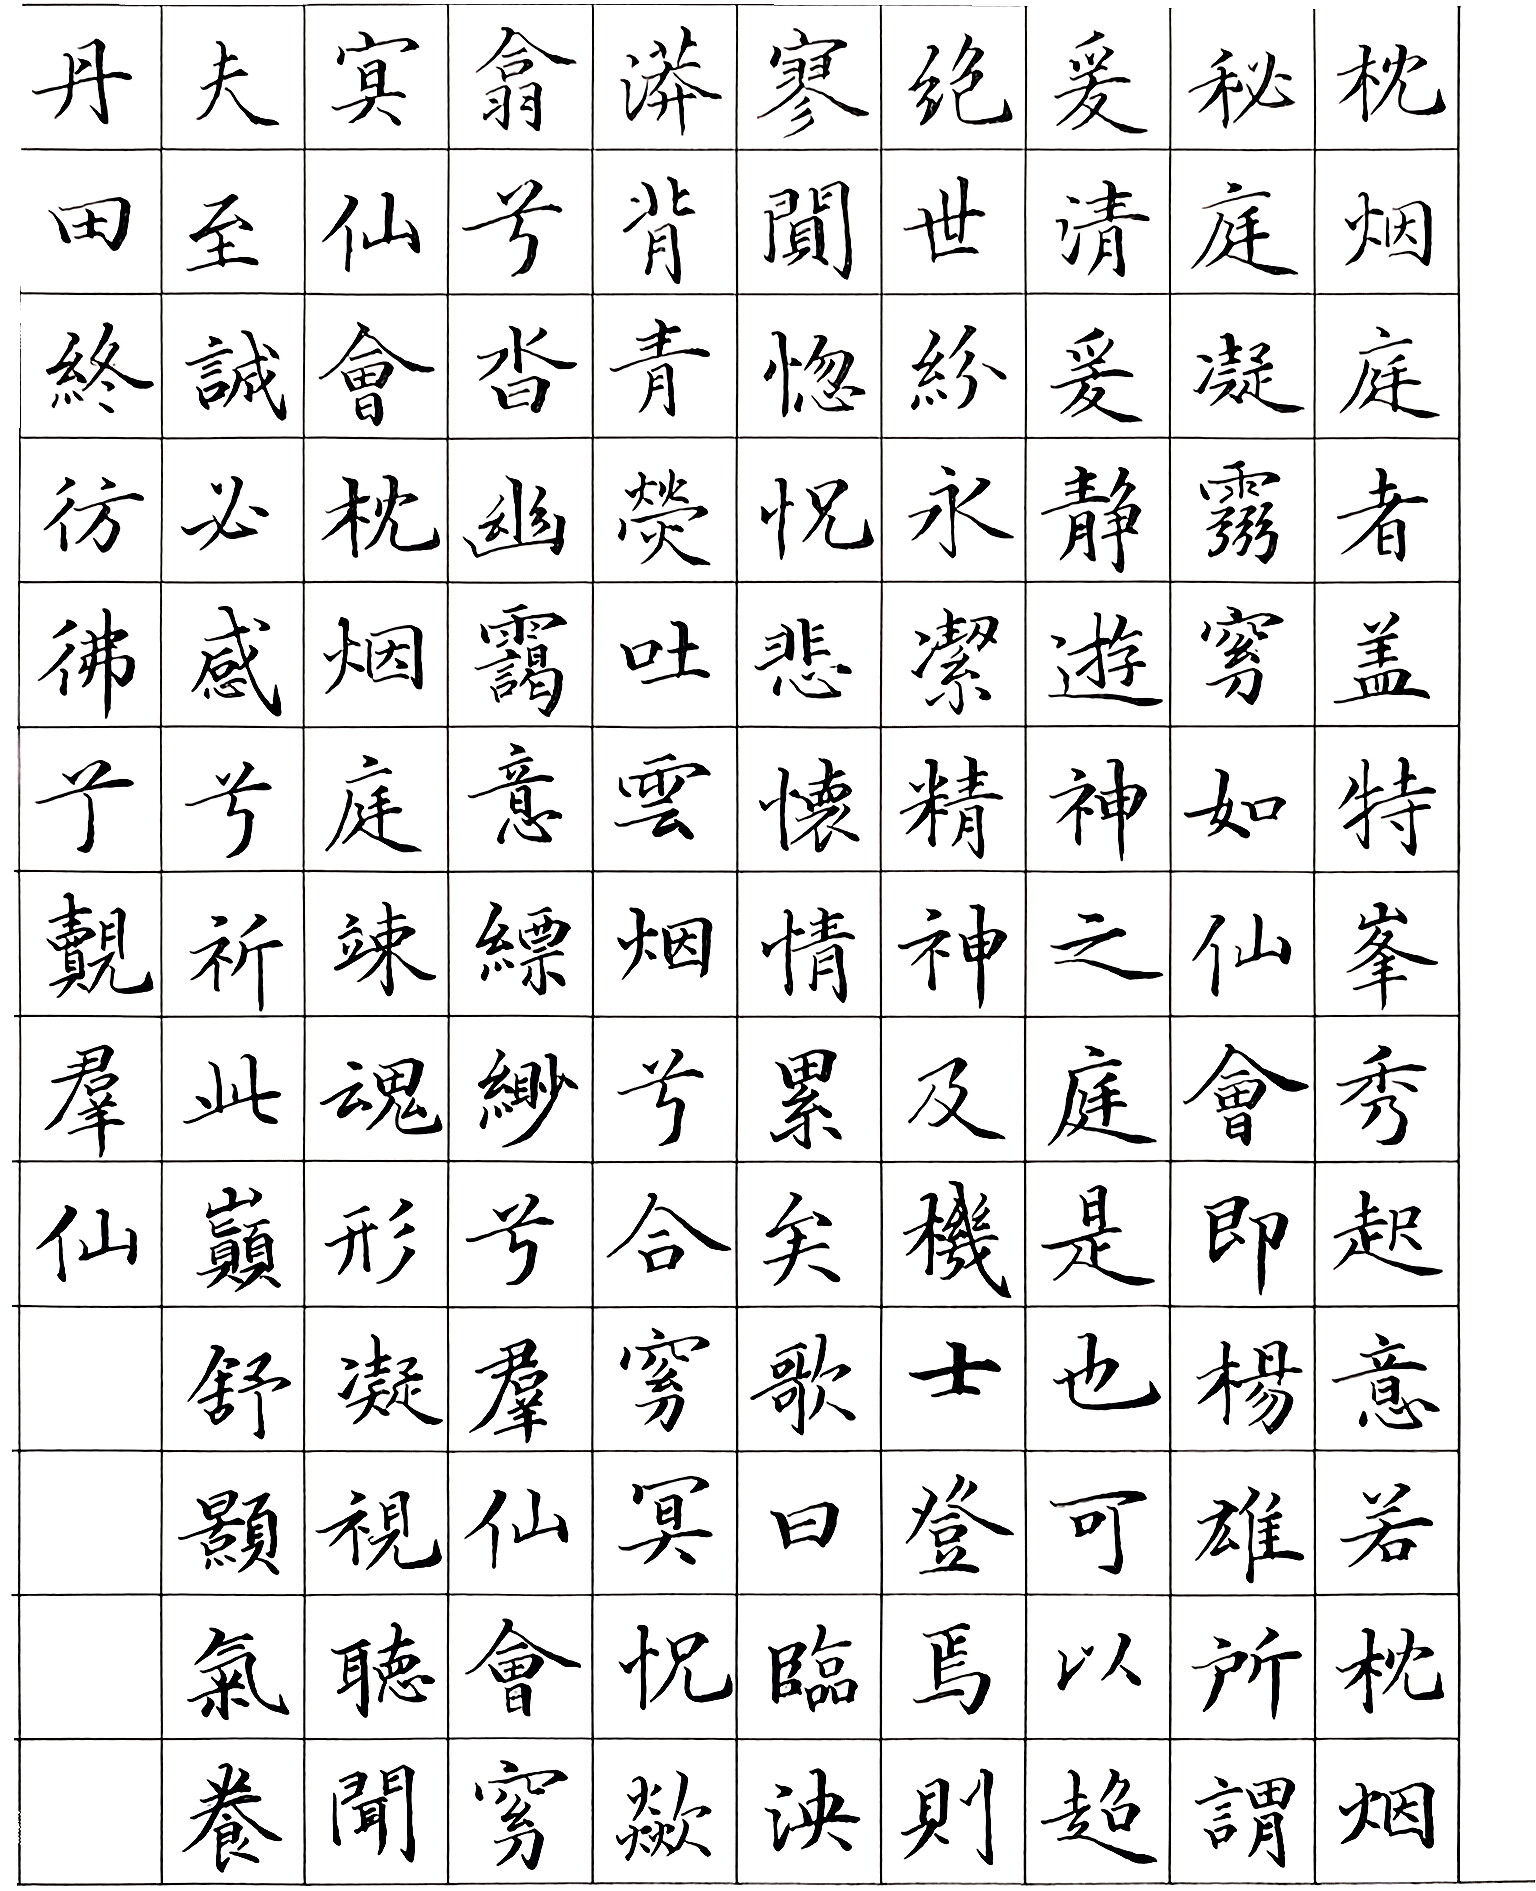 枕烟庭者盖特峯秀起意若枕烟
秘庭凝霛窅如仙會即楊雄所謂
爰清爰静遊神之庭是也可以超
絶世紛永潔精神及機士登焉則
寥閴惚怳悲懷情累矣歌曰臨泱
漭背青熒吐雲烟兮合窅冥怳歘
翕兮沓幽靄意縹緲兮羣仙會窅
冥仙會枕烟庭竦魂形凝視聴聞
夫至誠必感兮祈此巔舒顥氣養
丹田終彷彿兮覿羣仙